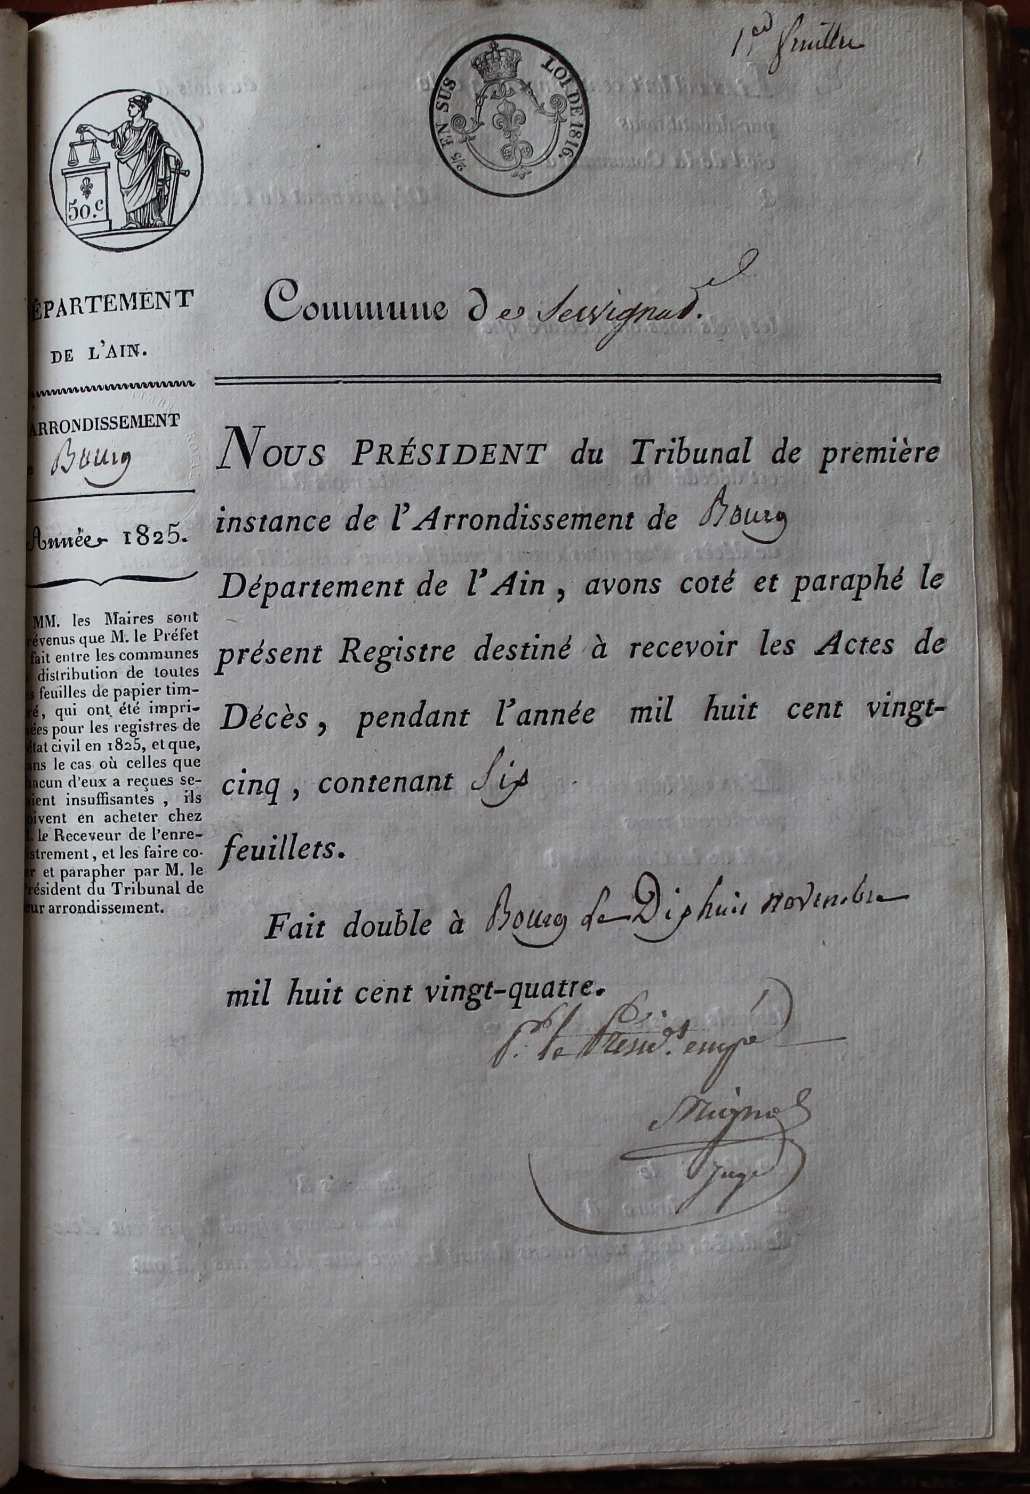 1er feuillet
2/5 EN SUS LOI DE 1816.
50.c
DÉPARTEMENT
DE L'AIN.
ARRONDISSEMENT
Bourg
Année 1825.
MM. les Maires sont
prévenus que M. le Préfet
fait entre les communes
distribution de toutes
feuilles de papier tim-
bré, qui ont été impri-
mées pour les registres de
l'état civil en 1825, et que,
dans le cas où celles que
chacun d'eux a reçues se-
raient insuffisantes, ils
doivent en acheter chez
M. le Receveur de l'enre-
gistrement, et les faire co-
ter et parapher par M. le
Président du Tribunal de
leur arrondissement.
Commune de Servignad.
NOUS PRÉSIDENT du Tribunal de première
instance de l'Arrondissement de Bourg
Département de l'Ain, avons coté et paraphé le
présent Registre destiné à recevoir les Actes de
Décès, pendant l'année mil huit cent vingt-
cinq, contenant Six
feuillets.
Fait double à Bourg le Dixhuit novembre
mil huit cent vingt-quatre.
Pr. le Présid.t empé
Juge